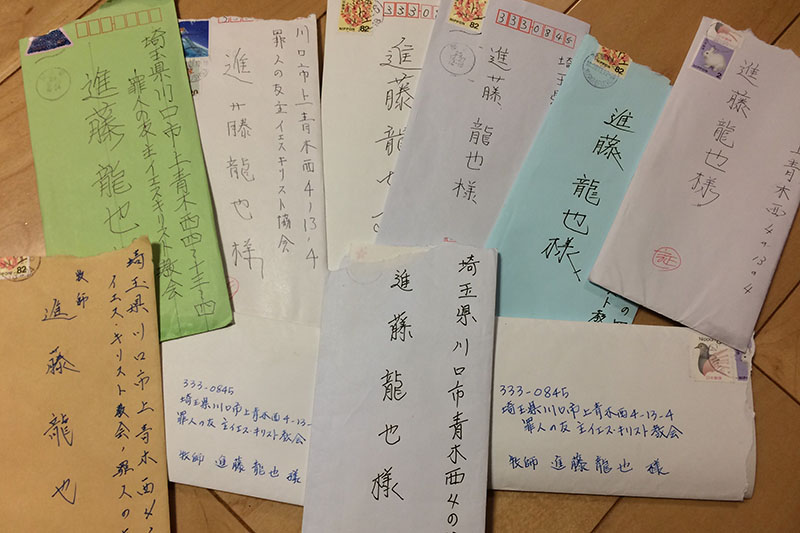 埼玉県川口市上青木西四ノ十三ノ四
罪人の友主イエスキリスト教会
進藤龍也
川口市上青木西4-13-4
罪人の友主イエスキリスト協会
進藤龍也様
82
3330
進藤龍也
82
3330845
埼
進藤龍也様
82
進藤龍也様
上青木西4の13の4
進藤龍也様
82
埼玉県川口市上青木西4
イエス・キリスト教会,罪人の
牧師
進藤龍也
333-0845
埼玉県川口市上青木西4-13-
罪人の友 主イエス・キリスト教会
牧師 進藤龍也様
埼玉県川口市青木西4の
進藤龍也様
333-0845
埼玉県川口市上青木西4-13-4
罪人の友 主イエス・キリスト教会
牧師 進藤龍也様